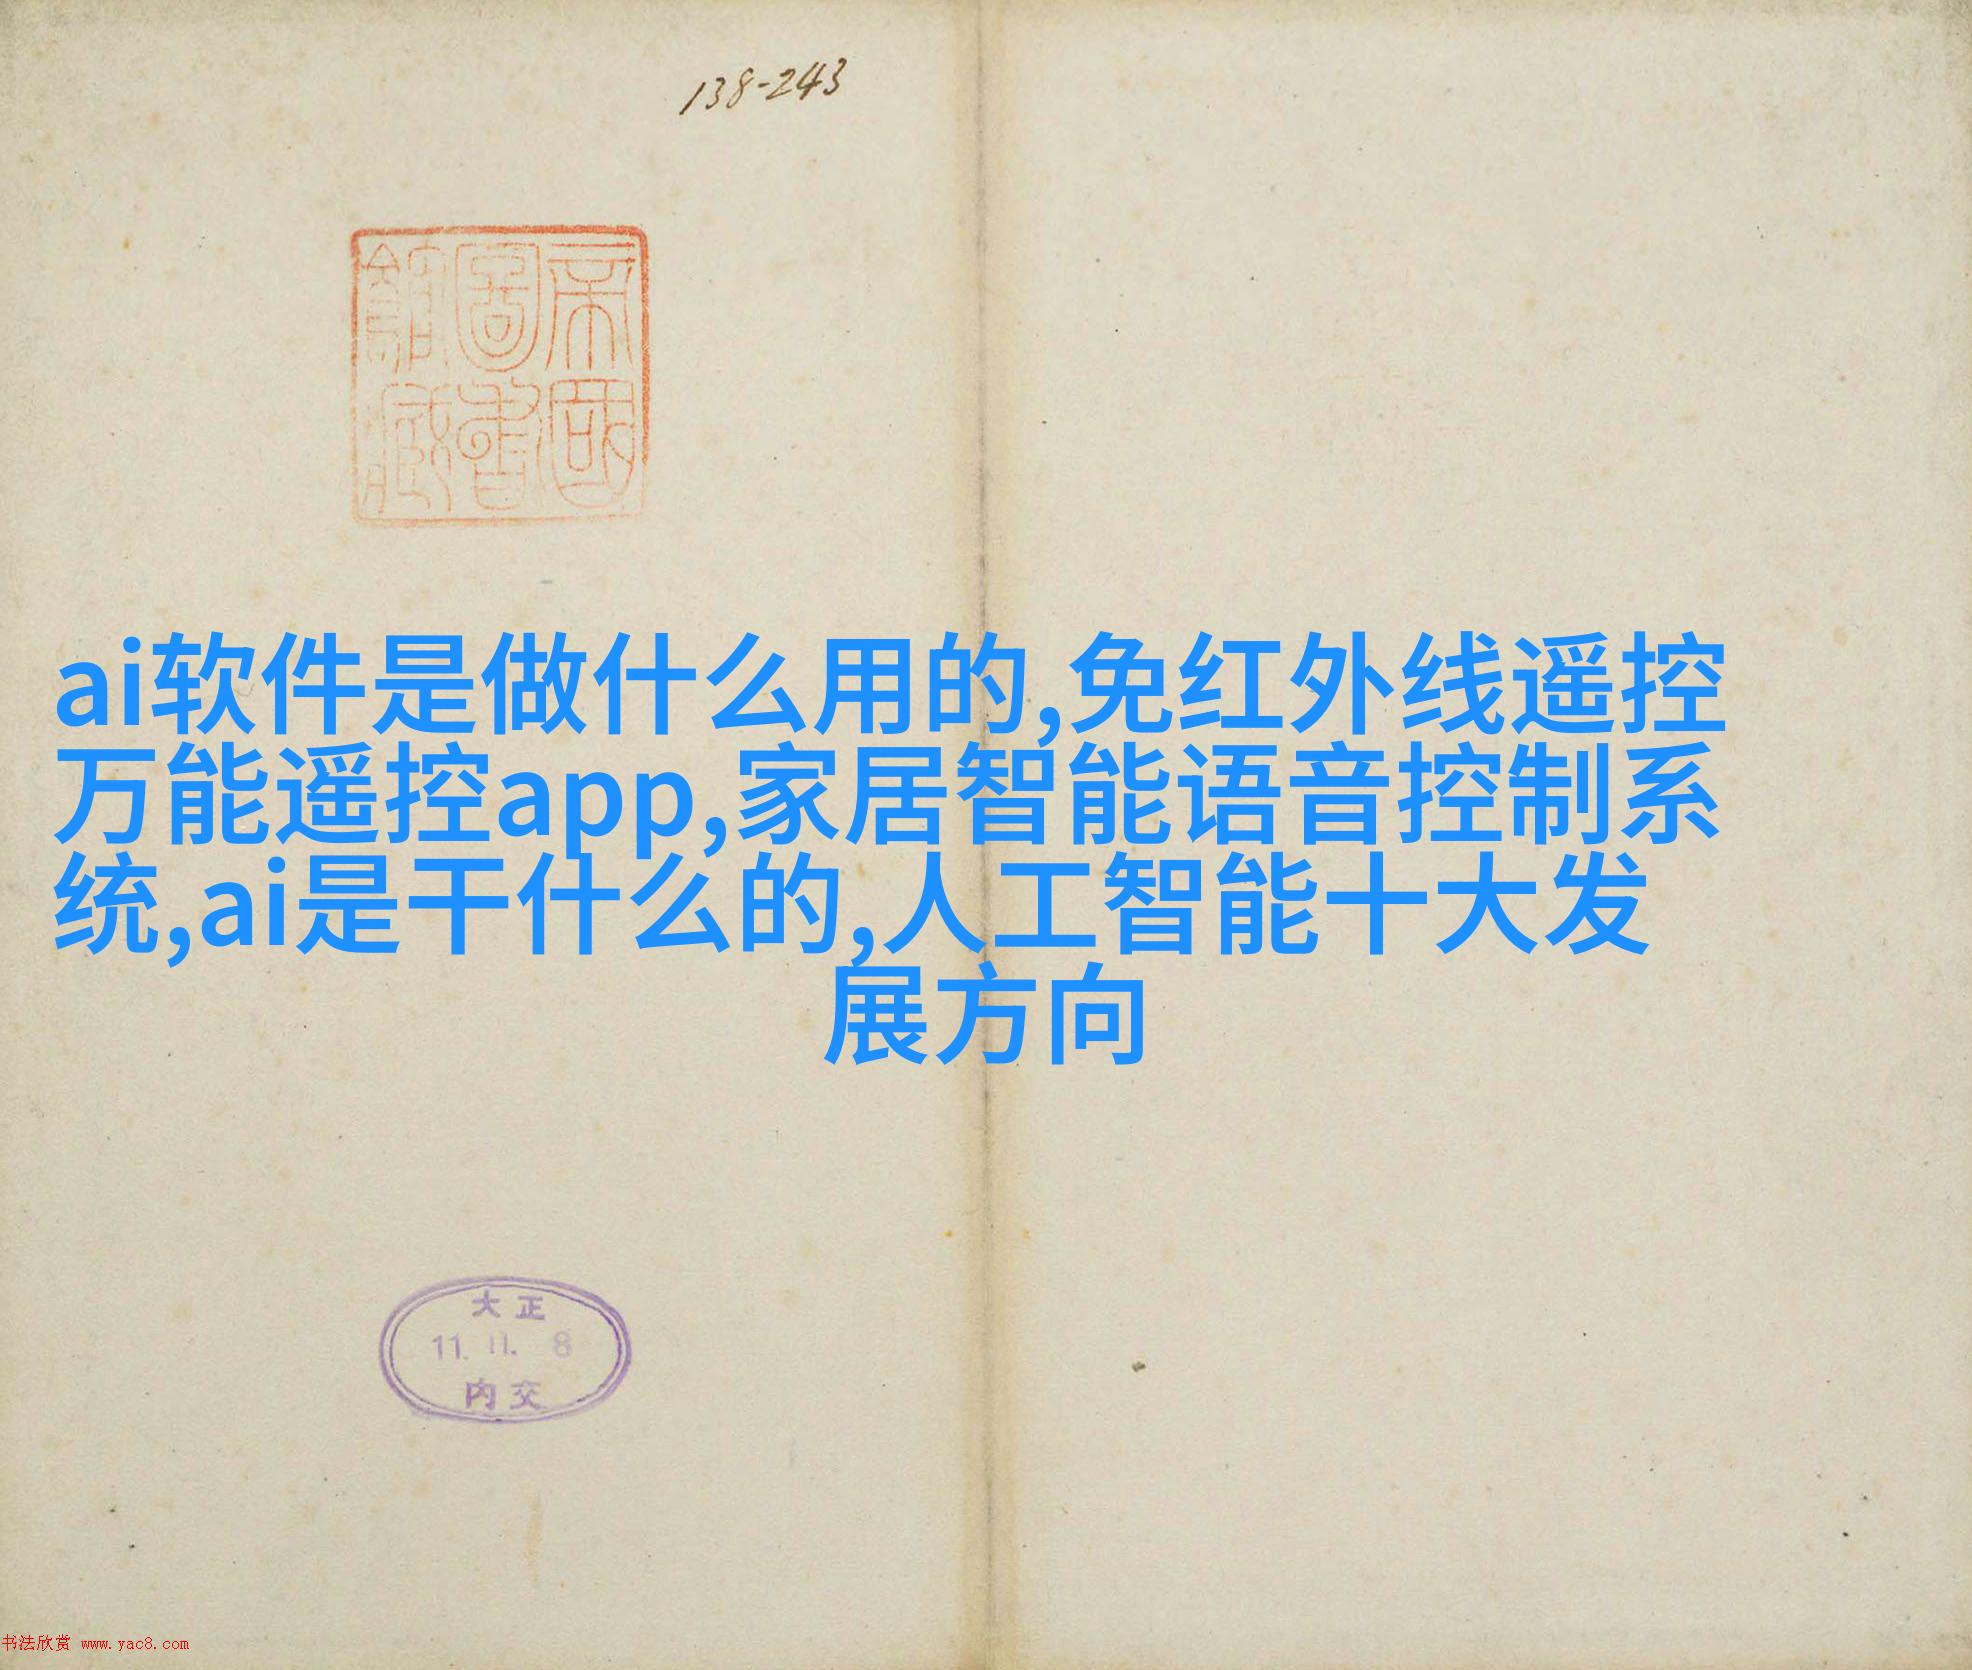 138-243
帝國
圖書
館藏
ai软件是做什么用的,免红外线遥控
万能遥控app,家居智能语音控制系
统,ai是干什么的,人工智能十大发
展方向
大正
11. 11. 8
内交
书法欣赏 www.yac8.com